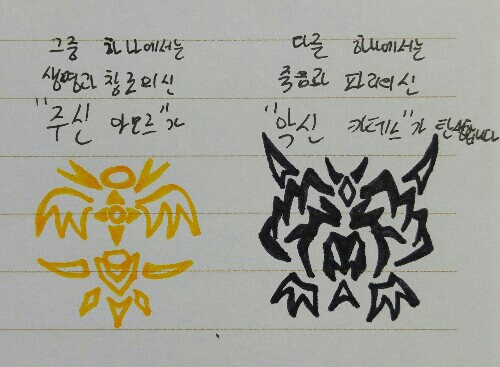 그중 하나에서는
생명과 창조의신
"주신 아모르"가
다른 하나에서는
죽음과 파괴의신
"악신 카데스"가 탄생합니다